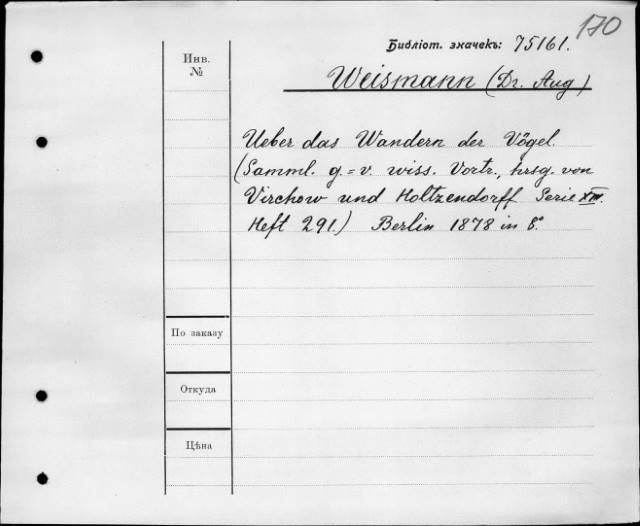 170
Библіот. значекъ: 75161.
Инв.
№
Weismann (Dr. Aug)
Ueber das Wandern der Vögel.
(Samml. g.=v. wiss. Vortr., hrsg. von
Virchow und Holtzendorff Serie XIII.
Heft 291.) Berlin 1878 in 8.°
По заказу
Откуда
Цѣна